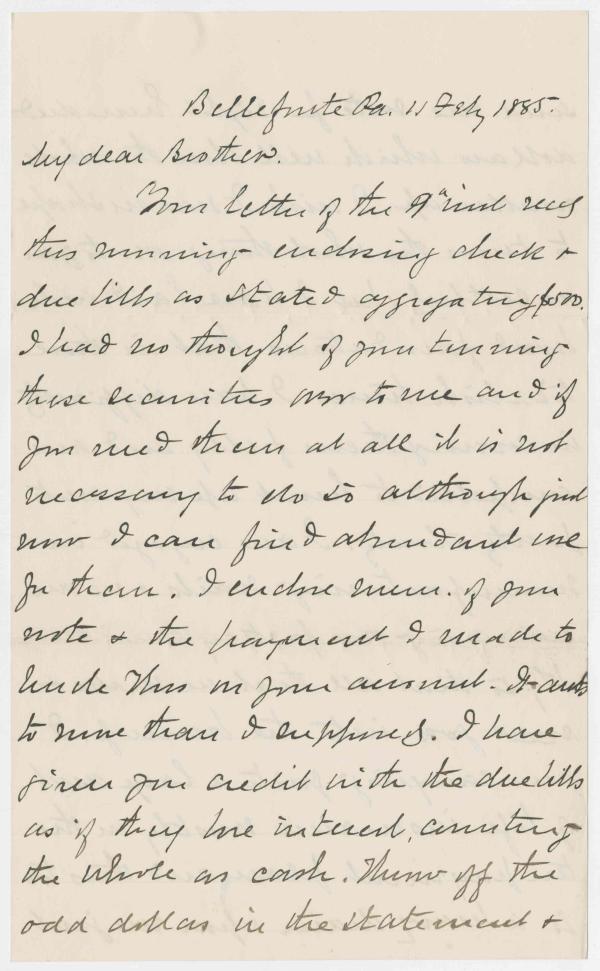 Bellefonte Pa. 11 Feby 1885.
My dear Brother.
Your letter of the 9th inst recd
this morning enclosing check &
due bills as stated aggregating $500.
I had no thought of your turning
these securities over to me and if
you need them at all it is not
necessary to do so although just
now I can find abundant use
for them. I enclose mem. of your
note & the payment I made to
Uncle Thos on your account. It amts
to more than I supposed. I have
given you credit with the due bills
as if they bore interest, counting
the whole as cash. Throw off the
odd dollars in the statement &